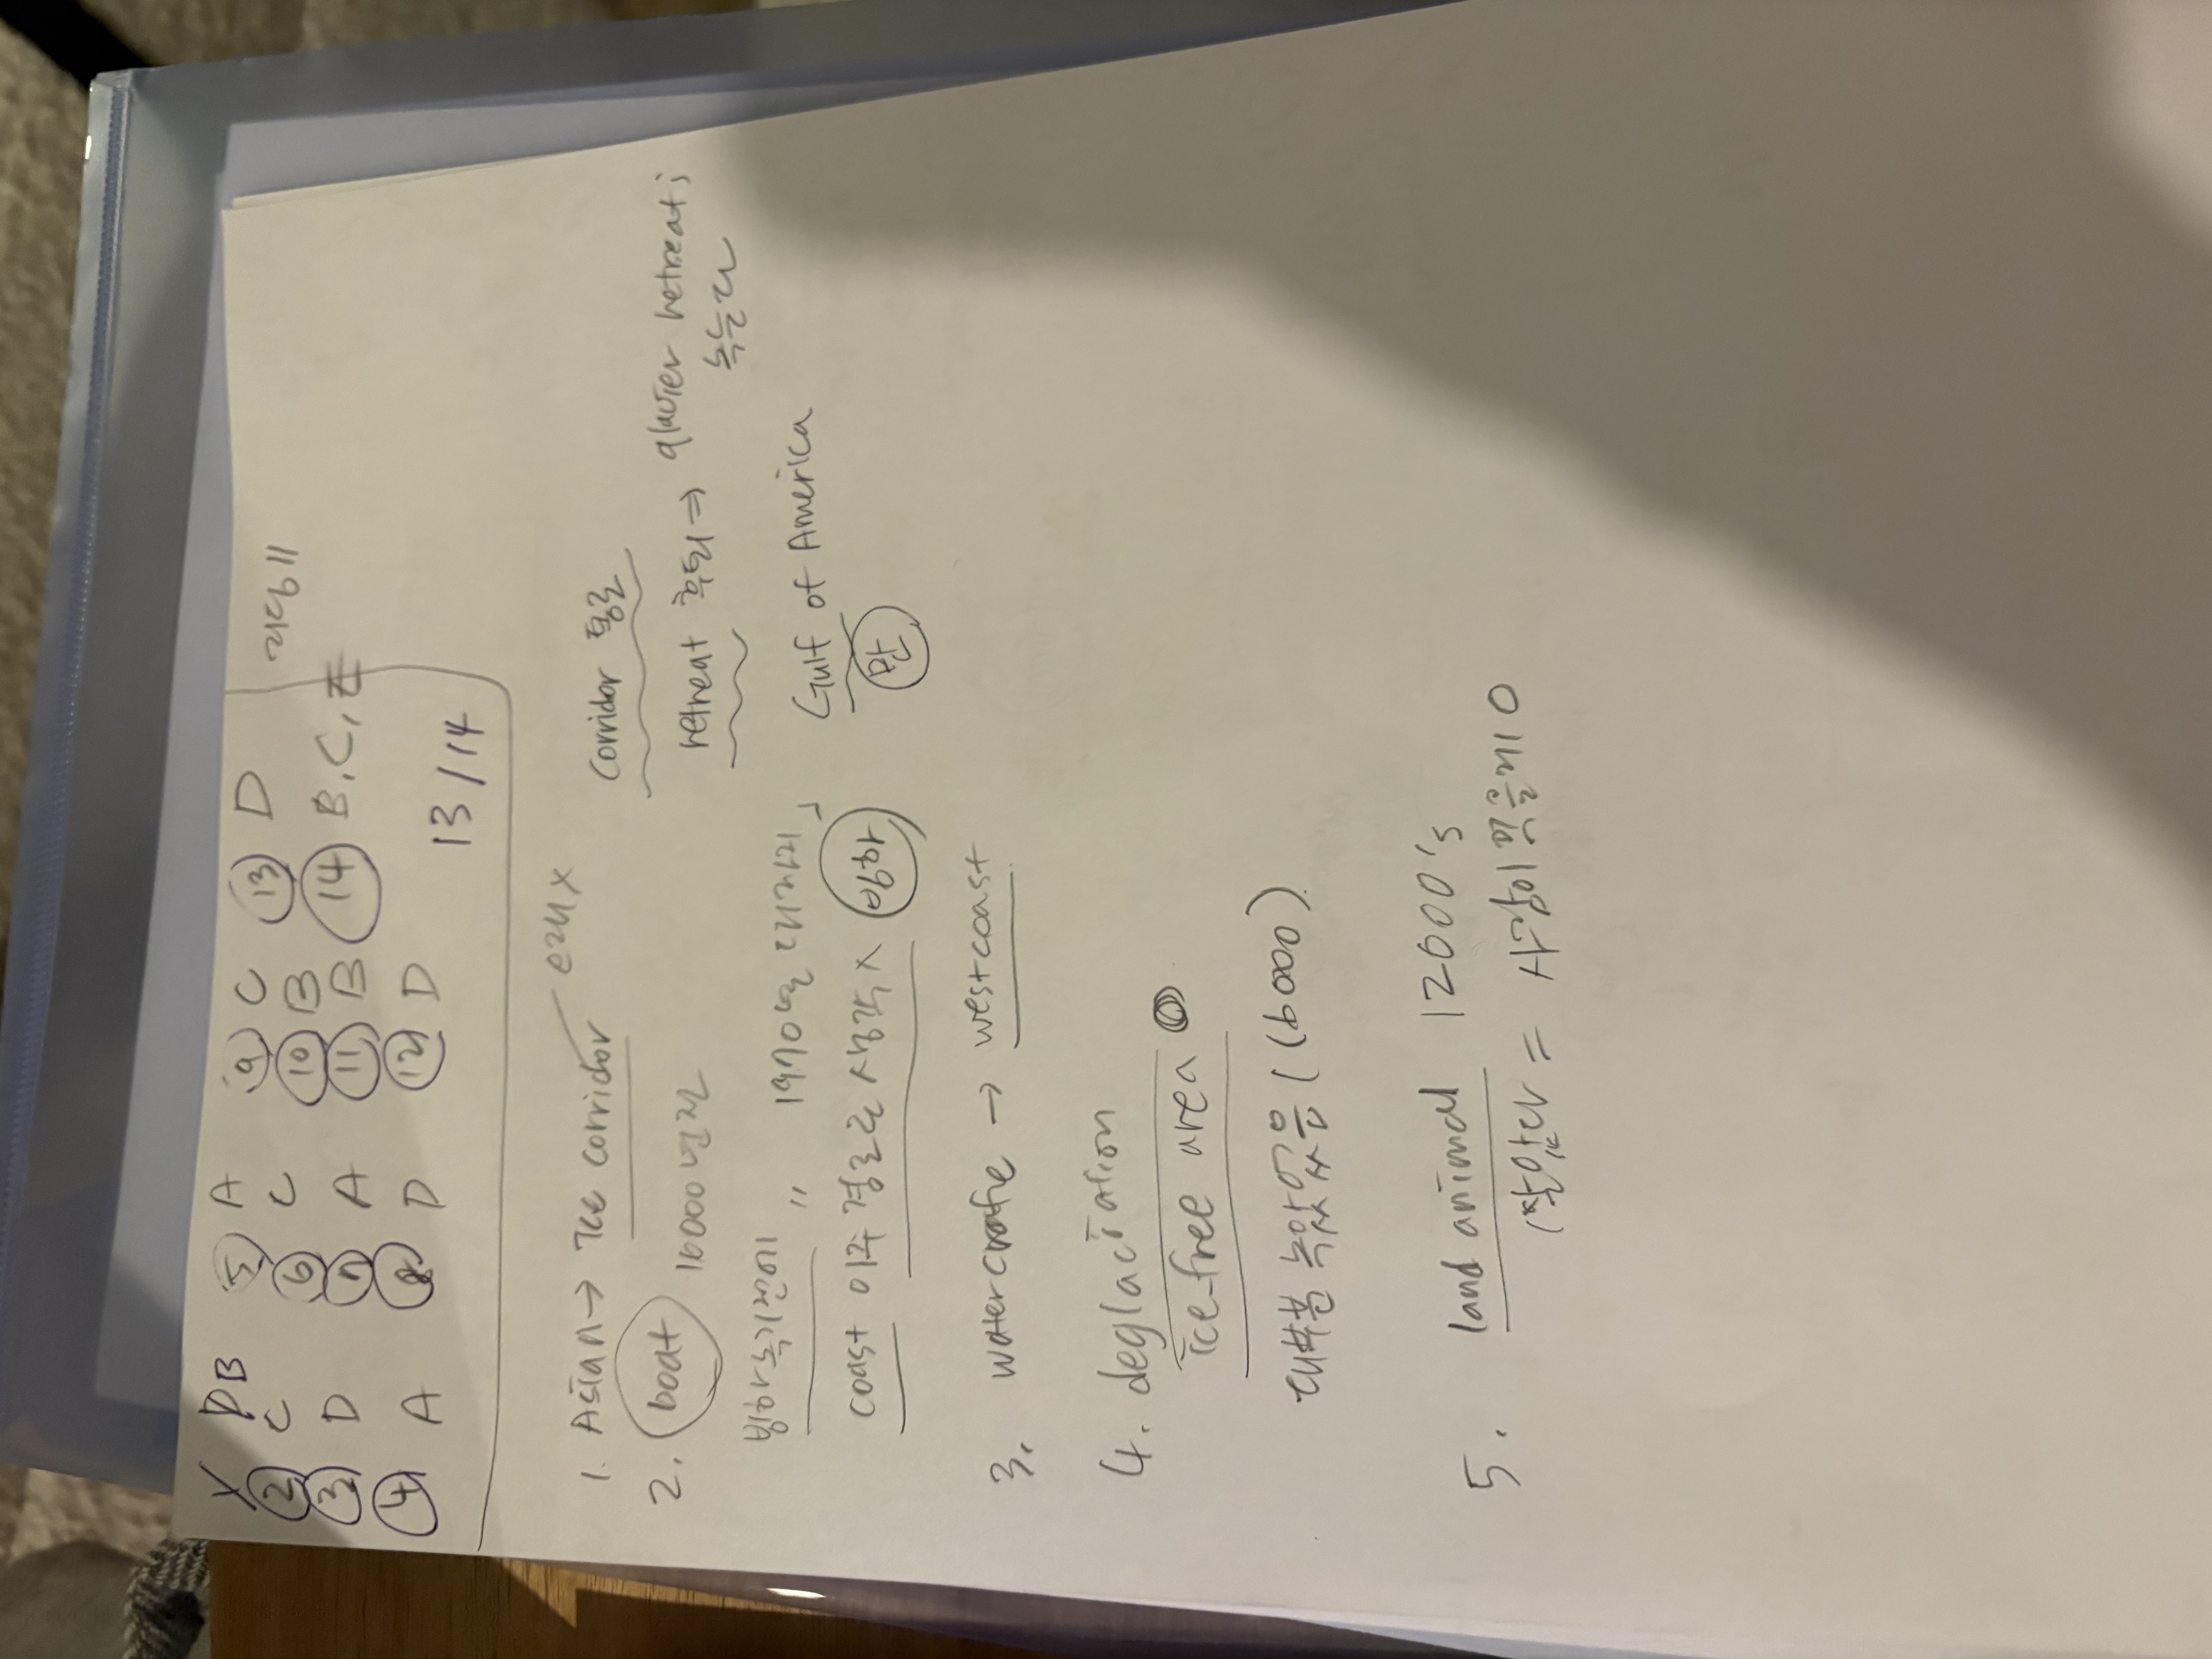 X DB ⑤ A ⑨ C ⑬ D
② C ⑥ C ⑩ B ⑭ B, C, E
③ D ⑦ A ⑪ B
④ A ⑧ D ⑫ D 13/14
1. Asian → Ice corridor
corridor 통로
2. boat 16000년전
retreat 후퇴 ⇒ glacier retreat;
녹는다
빙하 녹기전에 " 1970년 
Gulf of America
만
coast 이주 경로로 생각 X
3. watercrafte → westcoast
4. deglaciation
ice-free area
대부분 녹아있었음 (16000)
5. land animal 12600's
= 사람이